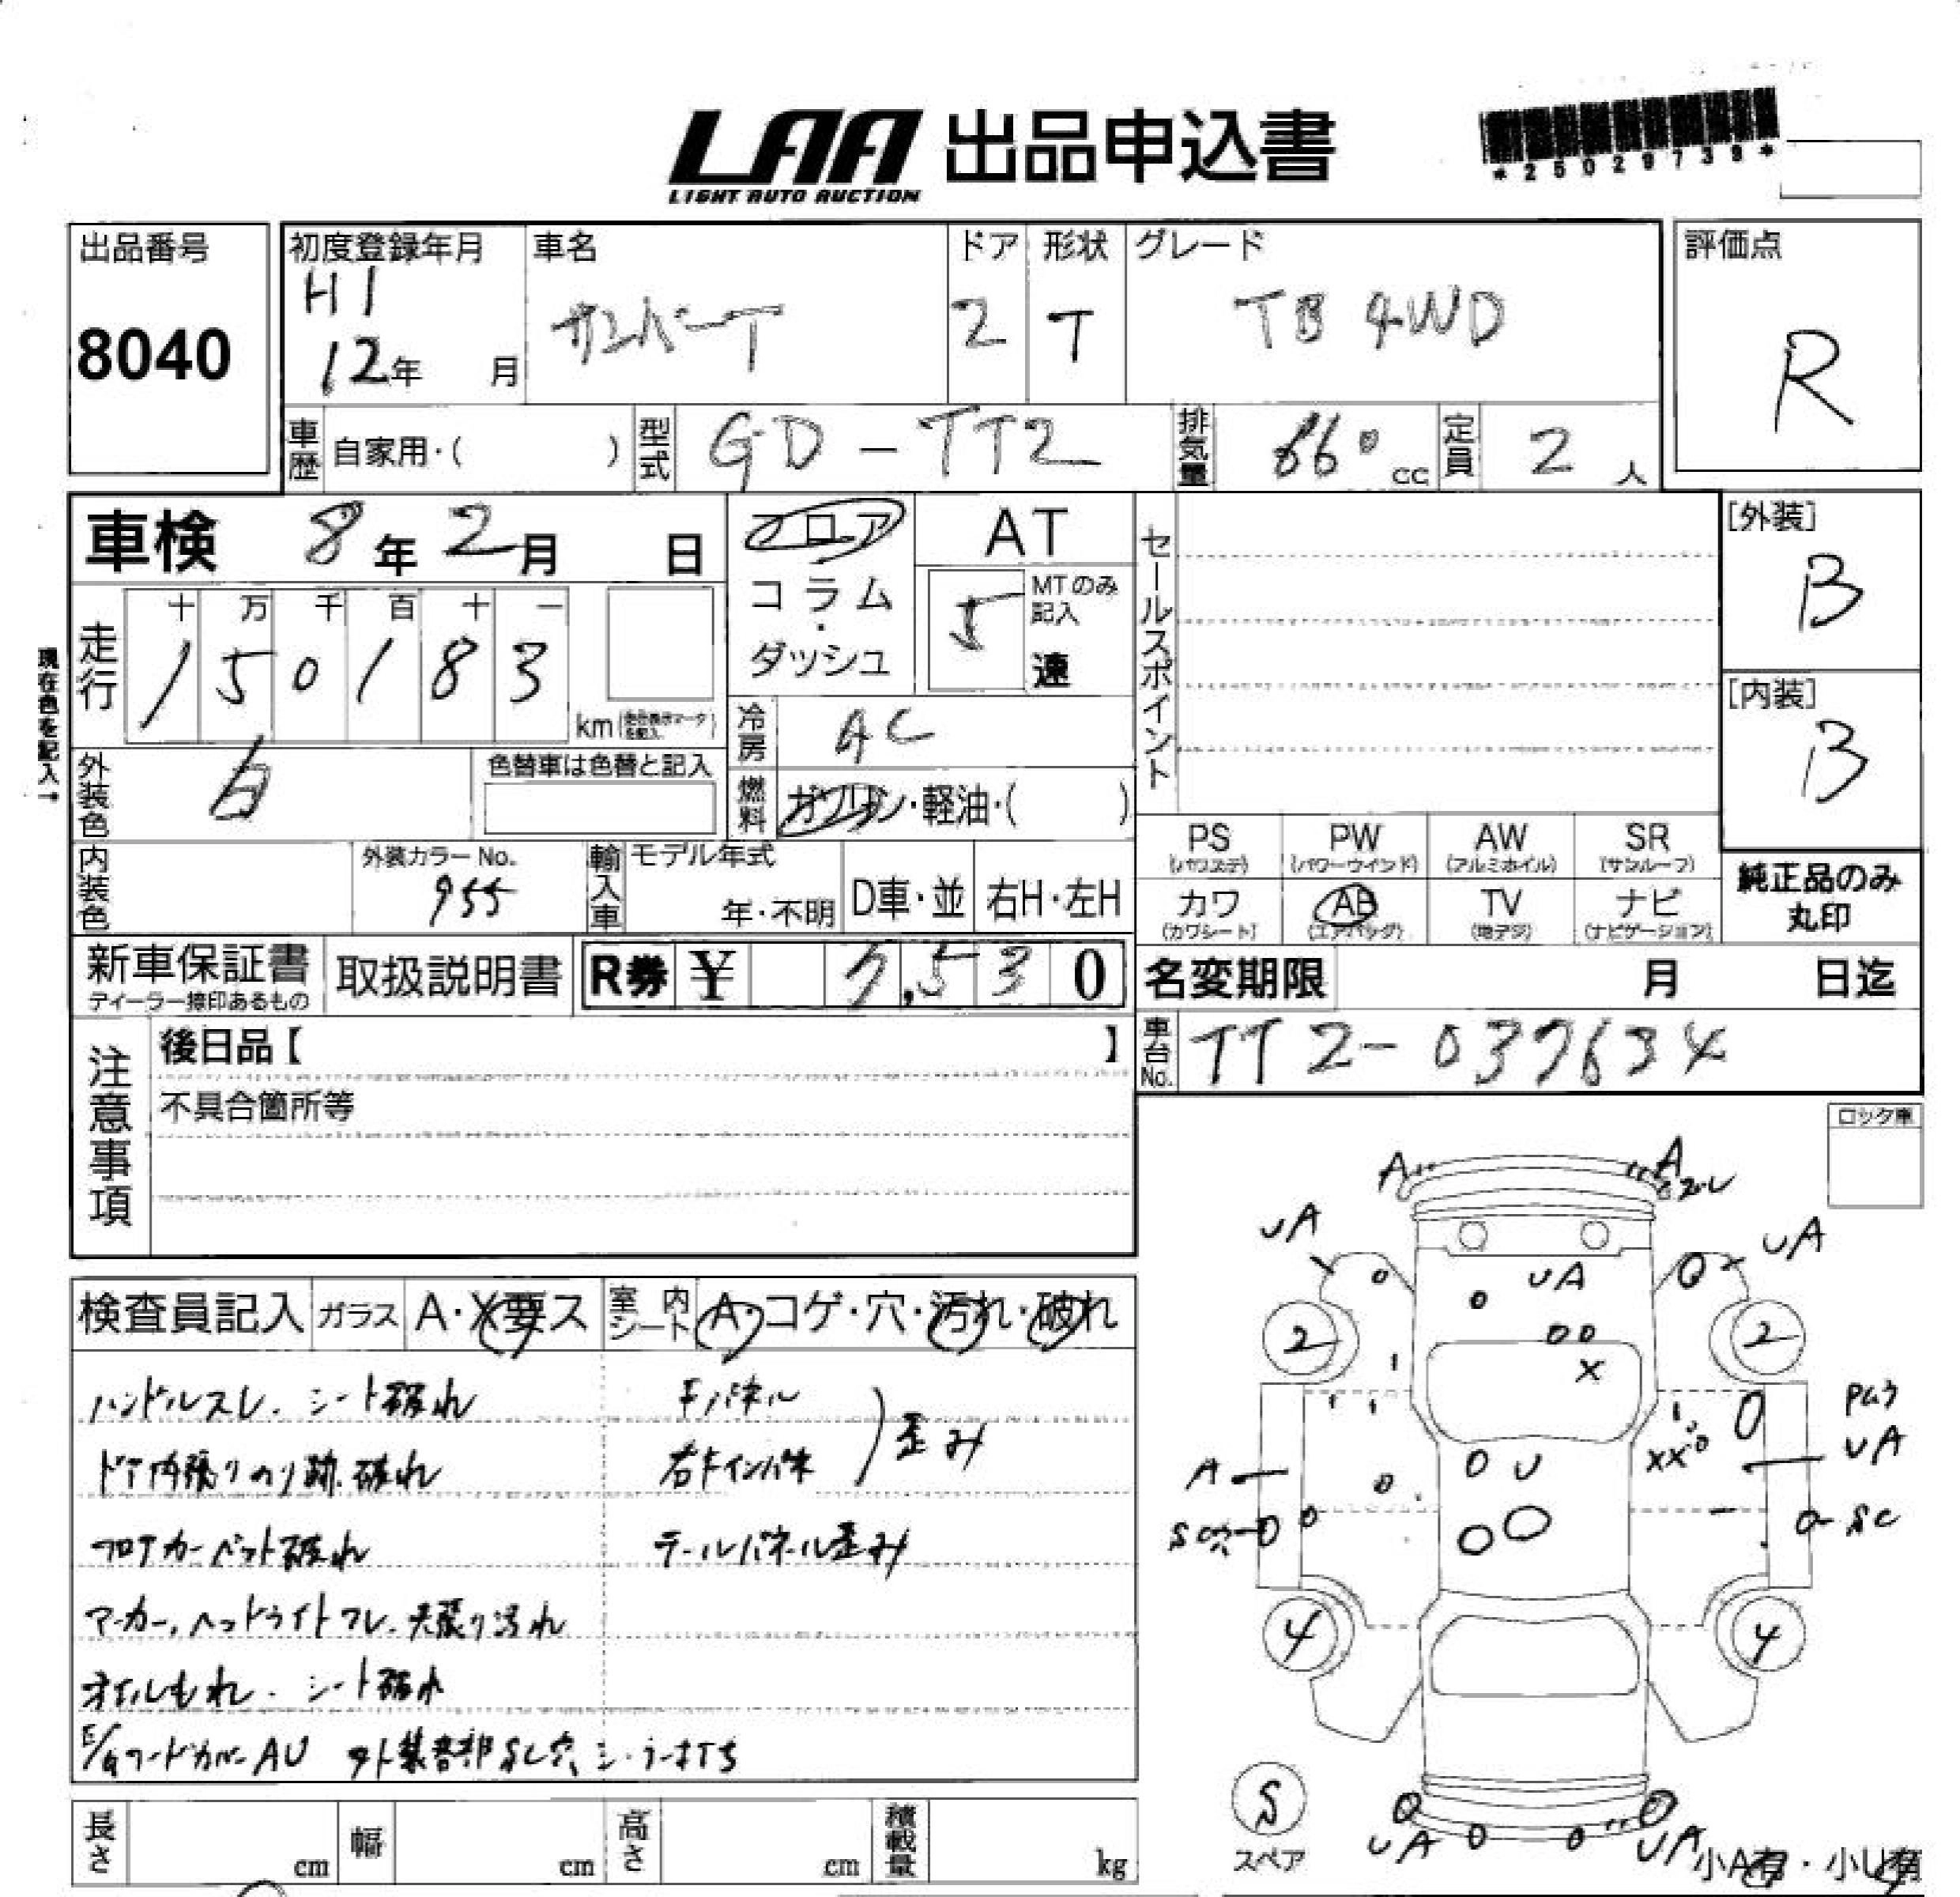 LAA 出品申込書
LIGHT AUTO AUCTION
*25029739*
出品番号
8040
初度登録年月
H1
12年 月
車名
サンバーT
ドア
2
形状
T
グレード
TB 4WD
評価点
R
車歴 自家用・( )
型式 GD-TT2
排気量 660 cc
定員 2 人
車検 8年2月 日
フロア
コラム・
ダッシュ
AT
5 MTのみ記入 速
セールスポイント
[外装]
B
[内装]
B
現在色を記入→
走行 十 万 千 百 十 一
1 5 0 1 8 3 km
冷房 AC
燃料 ガソリン・軽油・( )
外装色 白
色替車は色替と記入
内装色
外装カラーNo.
955
輸入車
モデル年式
年・不明
D車・並
右H・左H
PS (パワステ)
PW (パワーウインド)
AW (アルミホイル)
SR (サンルーフ)
カワ (カワシート)
AB (エアバッグ)
TV (地デジ)
ナビ (ナビゲーション)
純正品のみ
丸印
新車保証書
ディーラー捺印あるもの
取扱説明書
R券 ¥ 7,530
名変期限 月 日迄
車台No. TT2-037634
注意事項
後日品【 】
不具合箇所等
検査員記入 ガラス A・X要ス 室内シート A・コゲ・穴・汚れ・破れ
ハンドルスレ、シート破れ
ドア内張りのり跡、破れ
フロアカーペット破れ
マーカー、ヘッドライトフレ、天張り汚れ
オイルもれ、シート破れ
E/GフードカバーAU 外装各部SC穴
右Fインパネ
歪み
テールパネル歪み
ロッタ車
A
A
UA
UA
UA
2
2
X
A
XX
UA
U
SC
4
4
S
スペア
UA
UA
小A有・小U有
長さ cm
幅 cm
高さ cm
積載量 kg